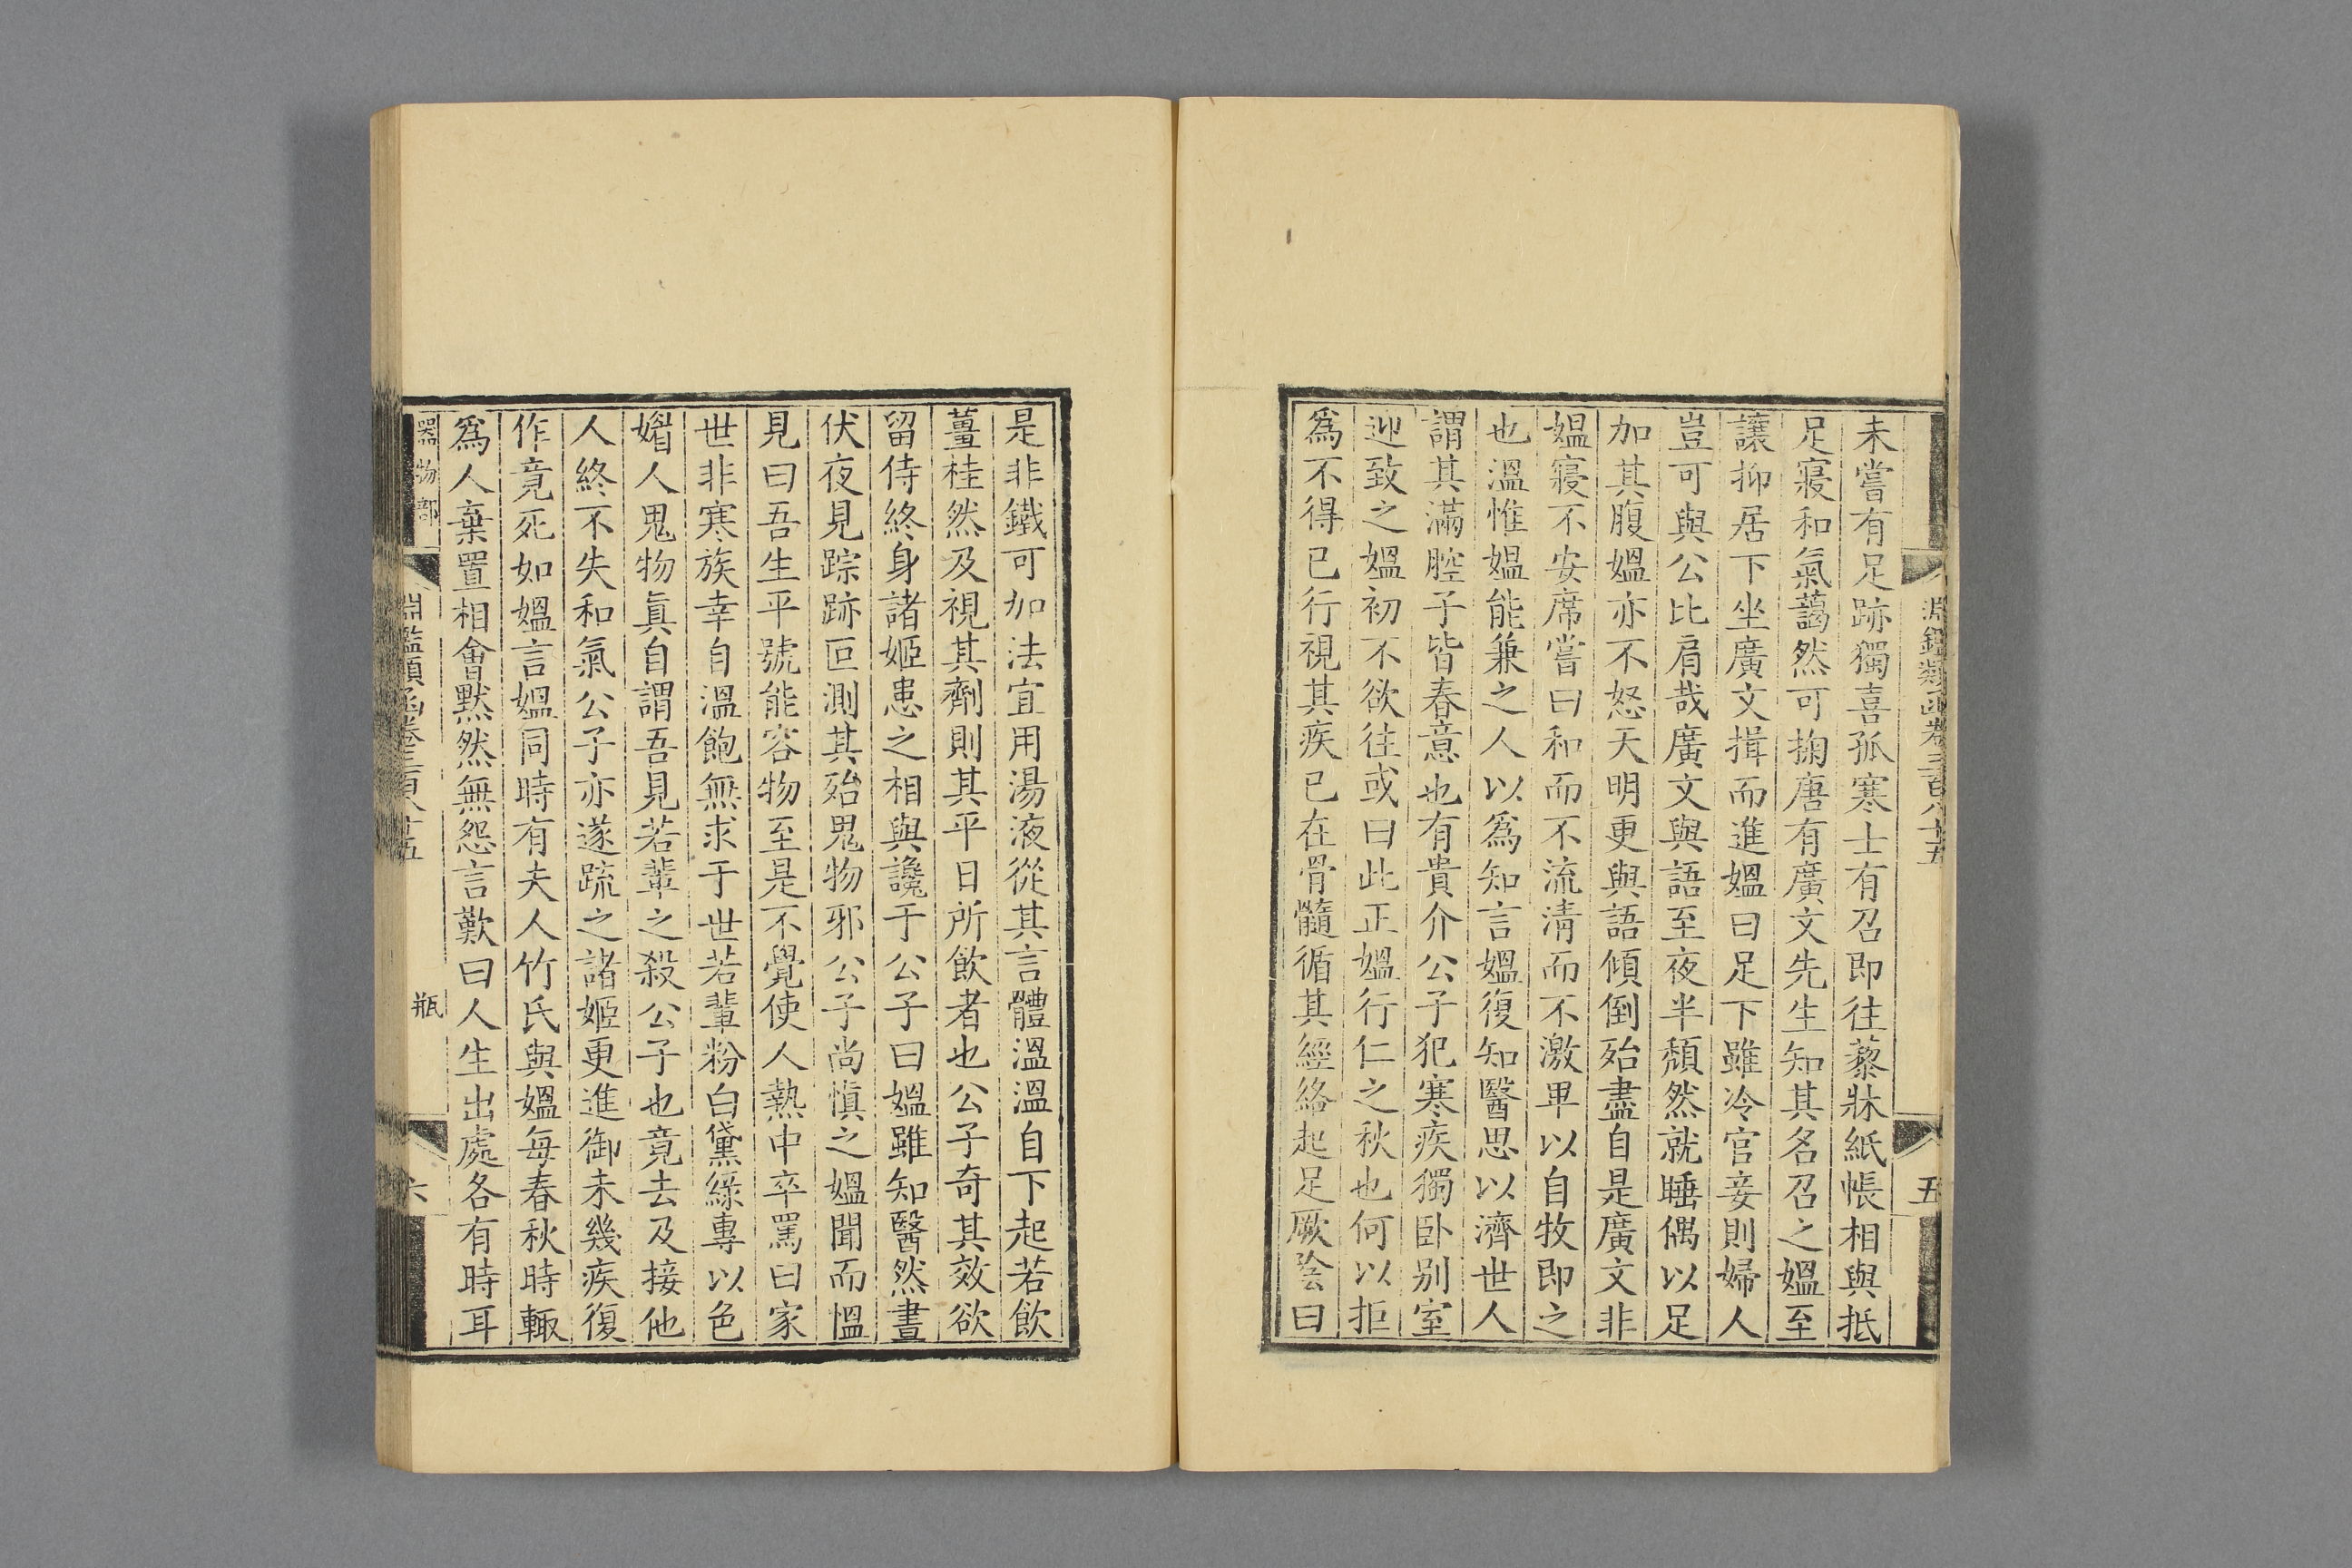 淵鑑類函卷三百八十五
五
未嘗有足跡獨喜孤寒士有召即往藜牀紙帳相與抵
足寢和氣藹然可掬唐有廣文先生知其名召之媼至
讓抑居下坐廣文揖而進媼曰足下雖冷官妾則婦人
豈可與公比肩哉廣文與語至夜半頹然就睡偶以足
加其腹媼亦不怒天明更與語傾倒殆盡自是廣文非
媼寢不安席嘗曰和而不流清而不激卑以自牧即之
也溫惟媼能兼之人以爲知言媼復知醫思以濟世人
謂其滿腔子皆春意也有貴介公子犯寒疾獨卧別室
迎致之媼初不欲往或曰此正媼行仁之秋也何以拒
爲不得已行視其疾已在骨髓循其經絡起足厥陰曰
是非鐵可加法宜用湯液從其言體溫溫自下起若飲
薑桂然及視其劑則其平日所飲者也公子奇其效欲
留侍終身諸姬患之相與讒于公子曰媼雖知醫然晝
伏夜見踪跡叵測其殆鬼物邪公子尚慎之媼聞而慍
見曰吾生平號能容物至是不覺使人熱中卒罵曰家
世非寒族幸自溫飽無求于世若輩粉白黛綠專以色
媚人鬼物眞自謂吾見若輩之殺公子也竟去及接他
人終不失和氣公子亦遂疏之諸姬更進御未幾疾復
作竟死如媼言媼同時有夫人竹氏與媼每春秋時輙
爲人棄置相會默然無怨言歎曰人生出處各有時耳
器物部
淵鑑類函卷三百八十五
瓶
六